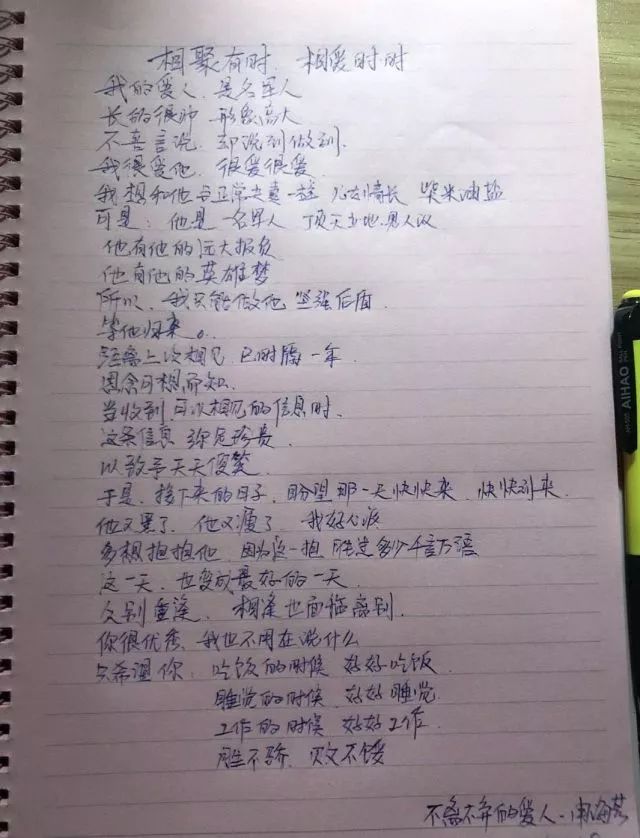 相聚有时，相爱时时
我的爱人，是名军人
长的很帅 形象高大
不喜言说，却说到做到．
我很爱他，很爱很爱．
我想和他 正常夫妻一样 儿女情长 柴米油盐
可是，他是一名军人 顶天立地．男人汉
他有他的远大报负
他有他的英雄梦
所以、我只能做他 坚强后盾．
等他归来。
距离上次相见 已时隔一年．
思念可想而知．
当收到 再次相见的信息时．
这条信息 弥足珍贵
以致于天天傻笑．
于是，接下来的日子，盼望那一天快快来，快快到来．
他又黑了，他又瘦了，我好心疼
多想抱抱他，因为这一抱 胜过多少千言万语
这一天，也变成最好的一天．
久别重逢，相逢也面临离别．
你很优秀、我也不用在说什么
只希望你：吃饭的时候 好好吃饭．
睡觉的时候 好好睡觉
工作的时候 好好工作．
胜不骄，败不馁
不离不弃的爱人
AIHAO